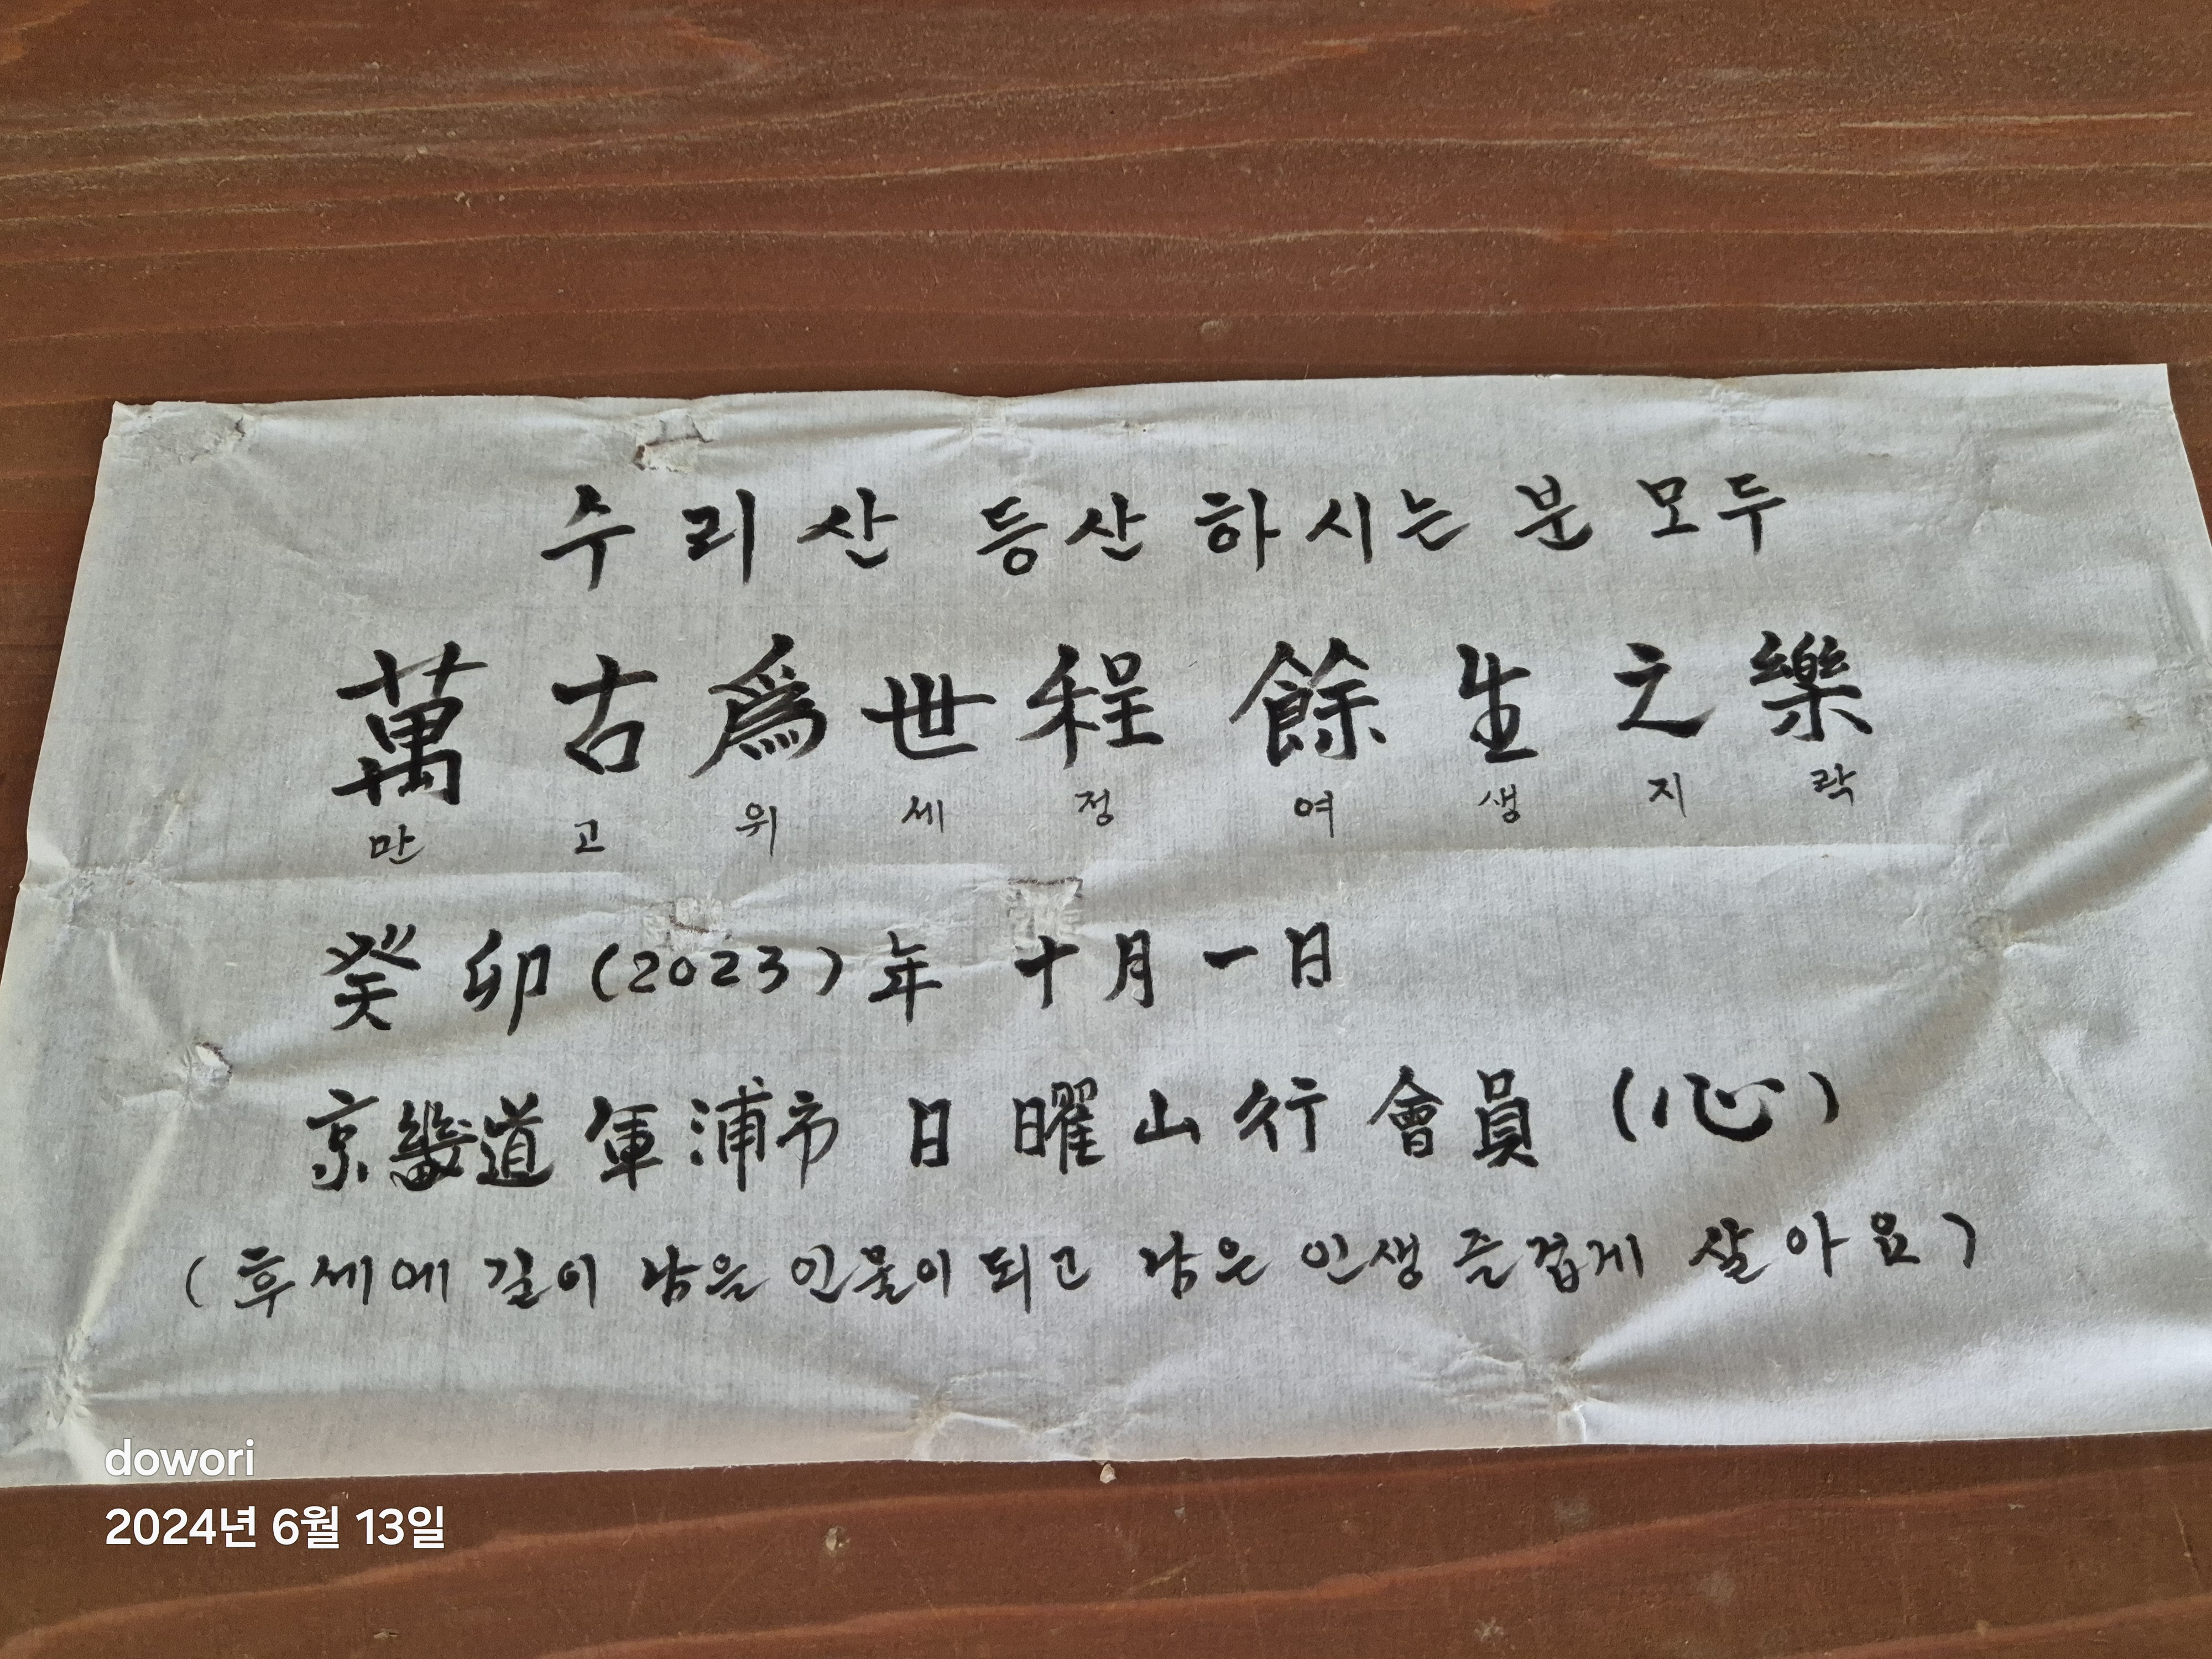 수리산 등산하시는 분 모두
萬古爲世程 餘生之樂
만 고 위 세 정 여 생 지 락
癸卯(2023)年 十月一日
京畿道 軍浦市 日曜山行 會員 (心)
(후세에 길이 남을 인물이 되고 남은 인생 즐겁게 살아요)
dowori
2024년 6월 13일